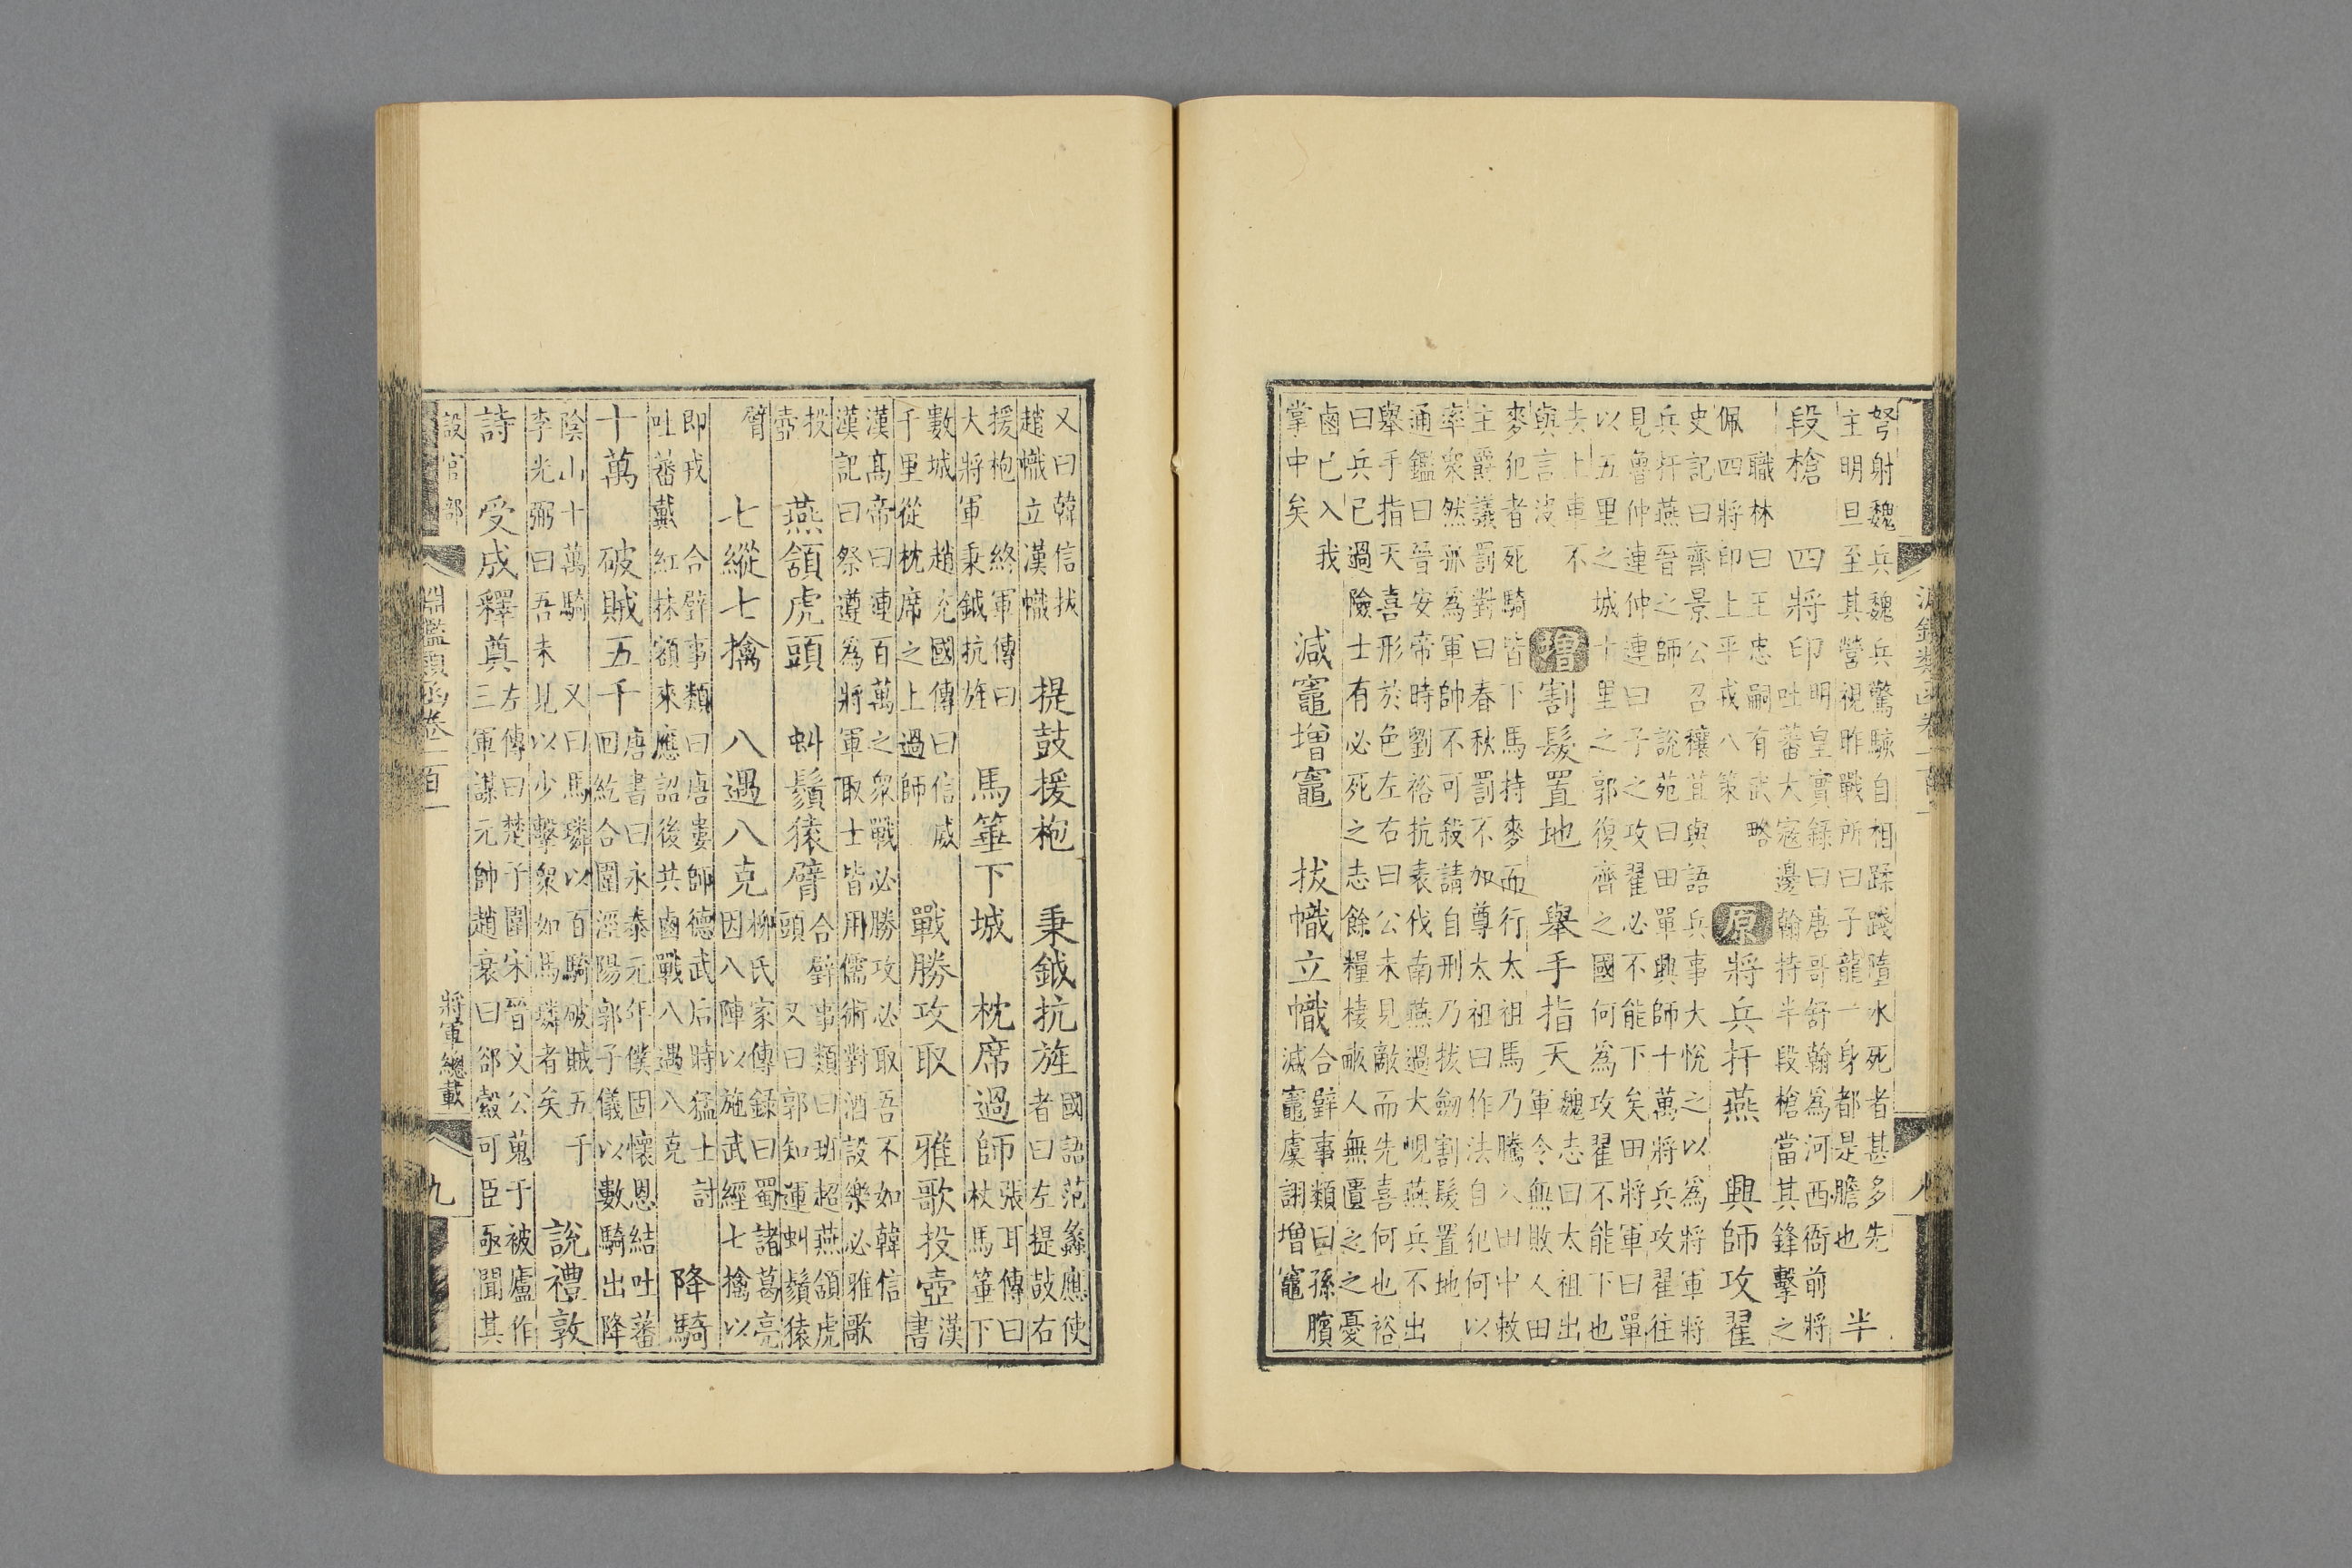 弩射魏兵魏兵驚駭自相蹂踐墮水死者甚多先
主明旦至其營視昨戰所曰子龍一身都是膽也
半
段槍 四將印
明皇實錄曰唐哥舒翰為河西衙前將
吐蕃大寇邊翰持半段槍當其鋒擊之
職林曰王忠嗣有武略
佩四將印上平戎八策
原 將兵扞燕 興師攻翟
史記曰齊景公召穰苴與語兵事大悅之以為將軍將
兵扞燕晉之師 說苑曰田單興師十萬將兵攻翟往
見魯仲連仲連曰子之攻翟必不能下矣田將軍曰單
以五里之城十里之郭復齊之國何為攻翟不能下也
去上車不
與言
增 割髮置地 舉手指天
魏志曰太祖出
軍令無敗人田
麥犯者死騎皆下馬持麥而行太祖馬乃騰入田中敕
主爵議罰對曰春秋罰不加尊太祖曰作法自犯何以
率衆然孤為軍帥不可殺請自刑乃拔劒割髮置地
通鑑曰晉安帝時劉裕抗表伐南燕過大峴燕兵不出
舉手指天喜形於色左右曰公未見敵而先喜何也裕
曰兵已過險士有必死之志餘糧棲畝人無匱之之憂
鹵已入我
掌中矣
減竈增竈 拔幟立幟
合璧事類曰孫臏
減竈虞詡增竈
又曰韓信拔
趙幟立漢幟
提鼓援枹 秉鉞抗旌
國語范蠡應使
者曰左提鼓右
援枹 終軍傳曰
大將軍秉鉞抗旌
馬箠下城 枕席過師
張耳傳曰
杖馬箠下
數城 趙充國傳曰信威
千里從枕席之上過師
戰勝攻取 雅歌投壺
漢
書
漢高帝曰連百萬之衆戰必勝攻必取吾不如韓信
漢記曰祭遵為將軍取士皆用儒術對酒設樂必雅歌
投
壺
燕頷虎頭 虯鬚猿臂
合璧事類曰班超燕頷虎
頭 又曰郭知運虯鬚猿
臂
七縱七擒 八遇八克
柳氏家傳錄曰蜀諸葛亮
因八陣以施武經七擒以
即戎 合璧事類曰唐婁師德武后時猛士討
吐蕃戴紅抹額來應詔後共鹵戰八遇八克
降騎
十萬 破賊五千
唐書曰永泰元年僕固懷恩結吐蕃
回紇合圍涇陽郭子儀以數騎出降
陰山十萬騎 又曰馬璘以百騎破賊五千
李光弼曰吾未見以少擊衆如馬璘者矣
說禮敦
詩 受成釋奠
左傳曰楚子圍宋晉文公蒐于被廬作
三軍謀元帥趙衰曰郤縠可臣亟聞其
設官部 淵鑑類函卷二百一 將軍總載 九